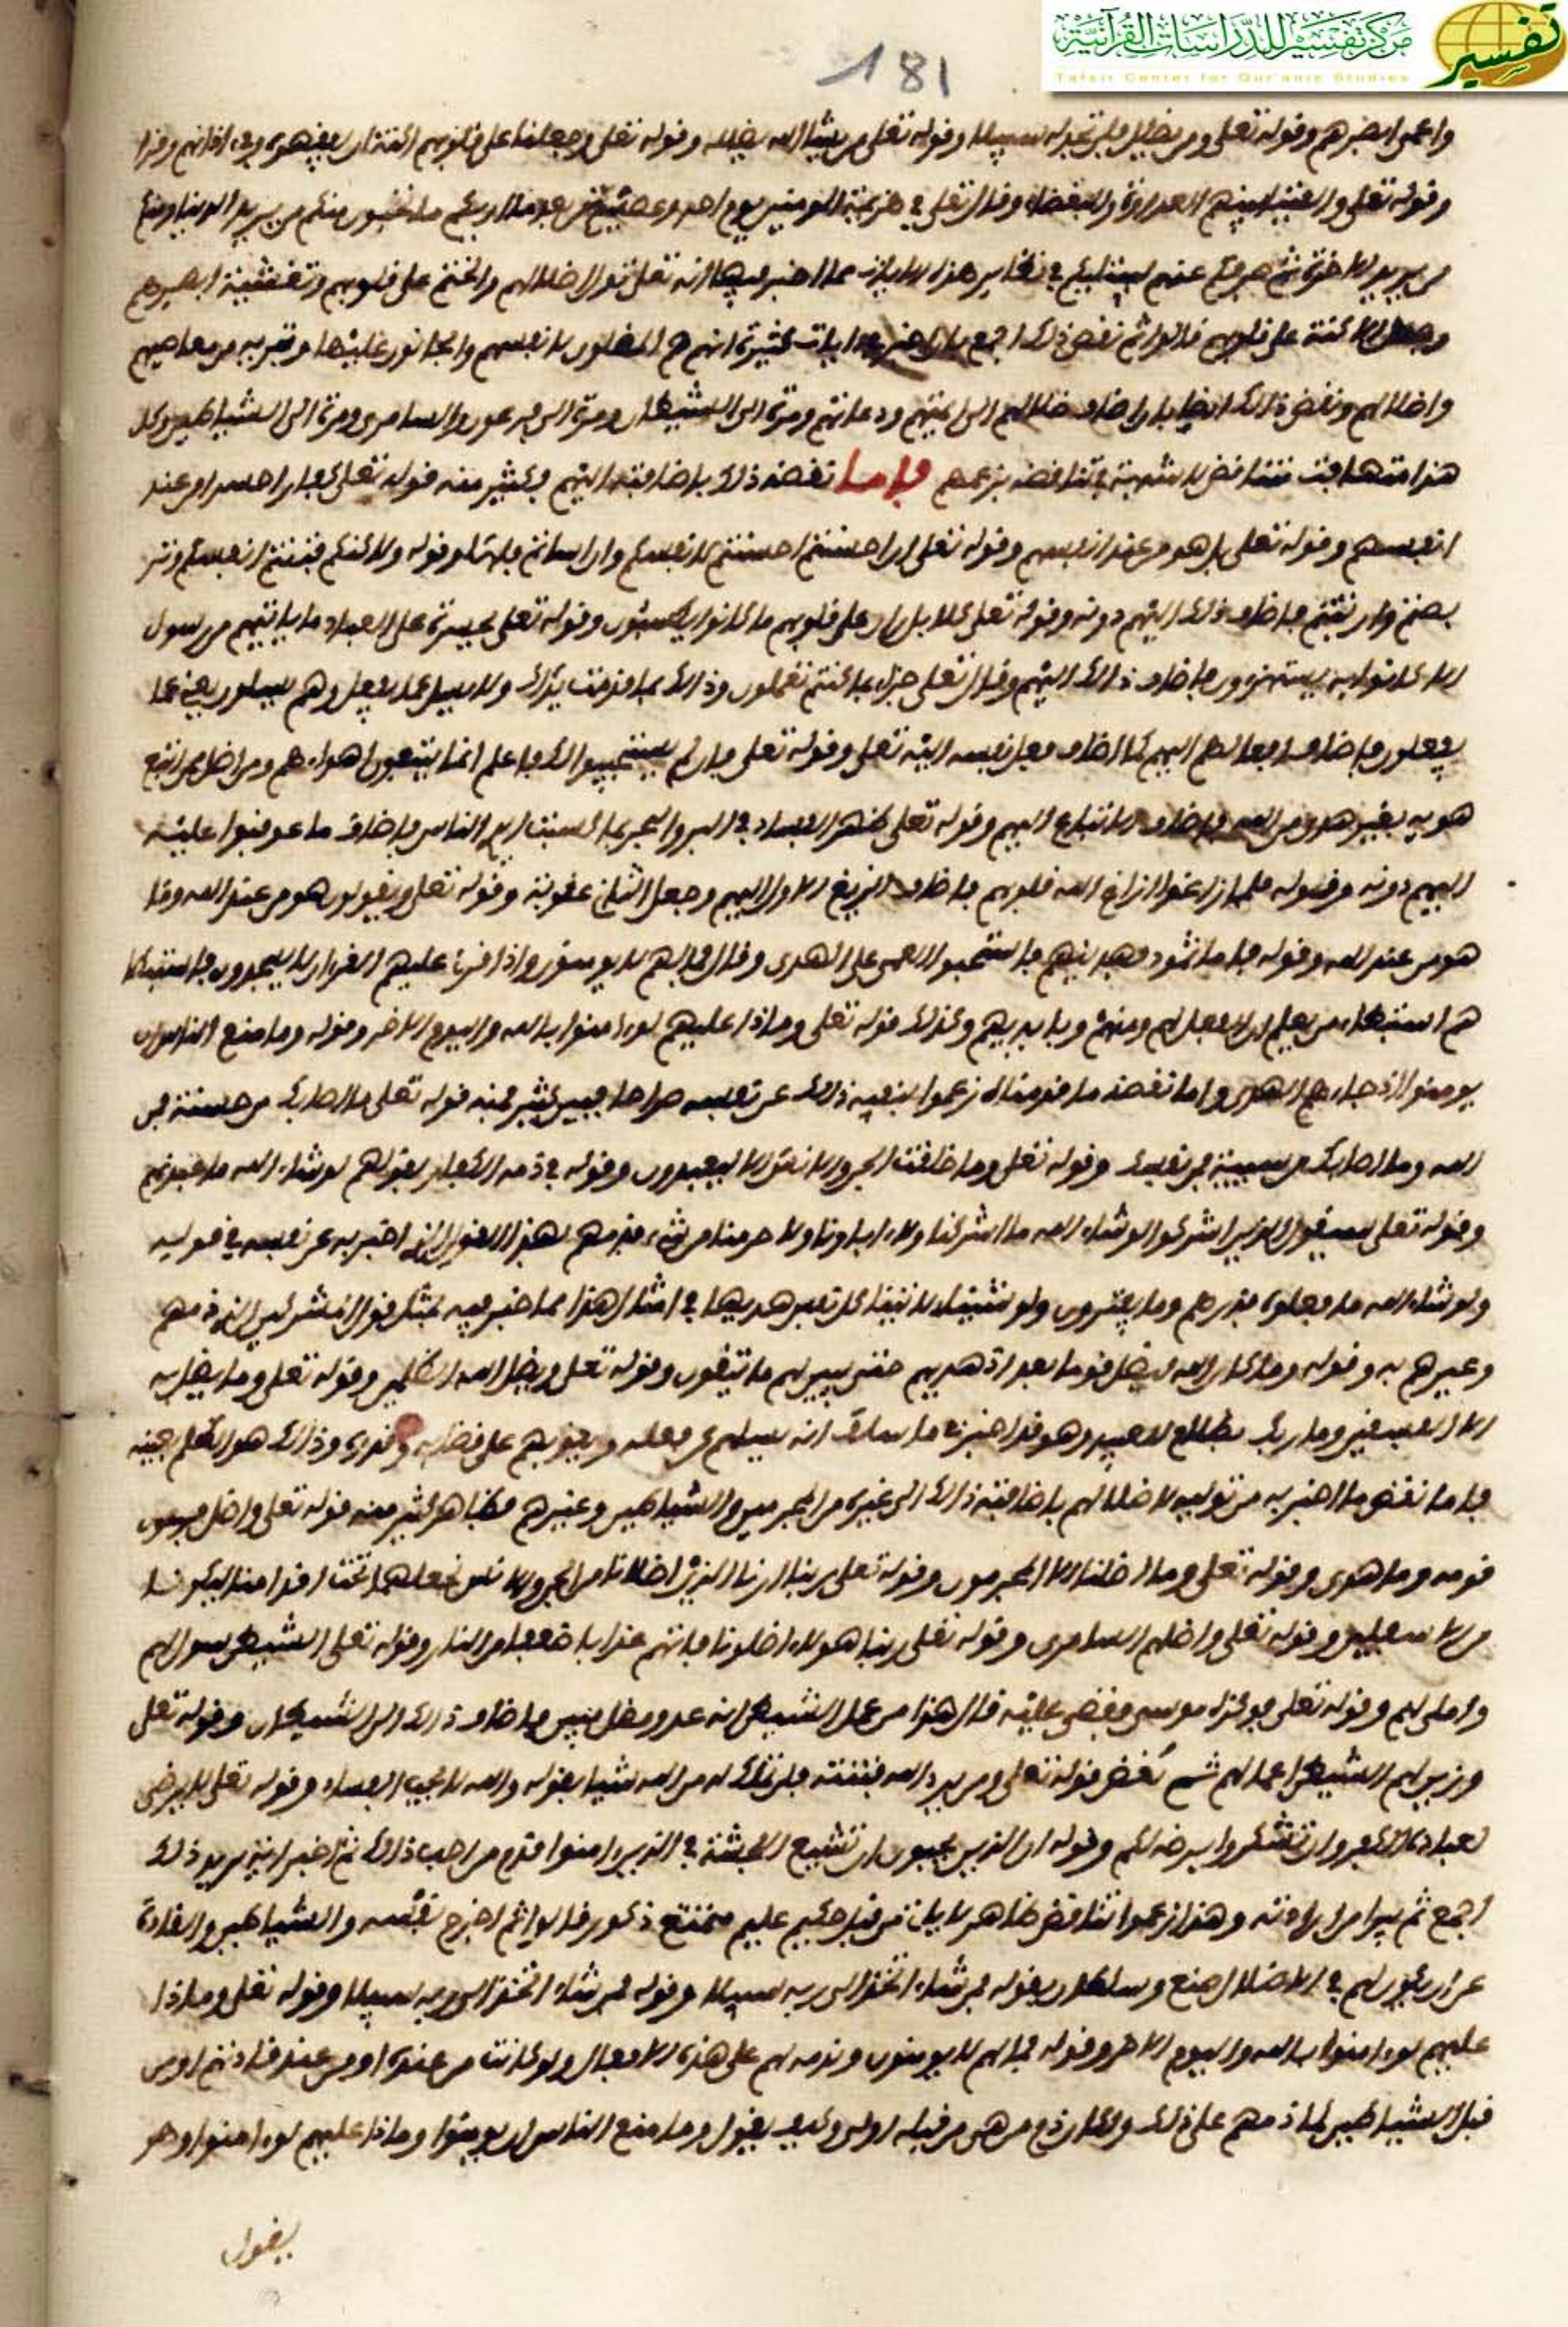 مركز تفسير للدراسات القرآنية
Tafsir Center for Qur'anic Studies
تفسير
181
واعمى ابصرهم وقوله تعلى ومن يضلل فلن تجد له سبيلا وقوله تعلى من يشا الله يضلله وقوله تعلى وجعلنا على قلوبهم اكنة ان يفقهوه وفي اذانهم وقرا
وقوله تعلى والقينا بينهم العداوة والبغضاء وقال تعلى في هزيمة المومنين يوم احد وعصيتم من بعد ما اريكم ما تحبون منكم من يريد الدنيا ومنكم
من يريد الاخرة ثم صرفكم عنهم ليبتليكم في نظاير هذه الايات مما اخبر فيها انه تعلى تولى اضلالهم والختم على قلوبهم وتغشية ابصرهم
وجعل الاكنة على قلوبهم قالوا ثم نقض ذلك اجمع بان اخبر في ايات كثيرة انهم هم المضلون لانفسهم والجانون عليها
واضلالهم ونقض ذلك ايضا بان اضاف ضلالهم الى ايمتهم ودعاتهم ومرة الى الشيطان ومرة الى فرعون والسامري ومرة الى الشياطين وكل
هذا متهافت متناقض لا شبهة في تناقضه بزعمهم فاما نقضه ذلك باضافته اليهم فكثير منه قوله تعلى كفارا حسدا من عند
انفسهم وقوله تعلى قل هو من عند انفسكم وقوله تعلى ان احسنتم احسنتم لانفسكم وان اساتم فلها وقوله ولاكنكم فتنتم انفسكم وتر
بصتم وارتبتم فاضاف ذلك اليهم دونه وقوله تعلى كلا بل ران على قلوبهم ما كانوا يكسبون وقوله تعلى يحسرة على العباد ما ياتيهم من رسول
الا كانوا به يستهزءون فاضاف ذلك اليهم وقال تعلى جزاء بما كنتم تعملون وذلك بما قدمت يداك ولا يسل عما يفعل وهم يسلون يعني عما
يفعلون فاضاف افعالهم اليهم كما اضاف فعل نفسه اليه تعلى وقوله تعلى فان لم يستجيبوا لك فاعلم انما يتبعون اهواءهم ومن اضل ممن اتبع
هويه بغير هدى من الله فاضاف الاتباع اليهم وقوله تعلى ظهر الفساد في البر والبحر بما كسبت ايدي الناس فاضاف ما عوقبوا عليه
اليهم دونه وقوله فلما زاغوا ازاغ الله قلوبهم فاضاف الزيغ الاول اليهم وجعل الثاني عقوبة وقوله تعلى ويقولون هو من عند الله وما
هو من عند الله وقوله فاما ثمود فهدينهم فاستحبوا العمى على الهدى وقال فما لهم لا يومنون واذا قرئ عليهم القرءان لا يسجدون فاستبطا
هم استبطاء من يعلم ان الفعل لهم ومنهم وبايديهم وكذلك قوله تعلى وماذا عليهم لو ءامنوا بالله واليوم الاخر وقوله وما منع الناس ان
يومنوا اذ جاءهم الهدى واما نقضه ما قدمناه زعموا بنفيه ذلك عن نفسه صراحا فبين كثير فمنه قوله تعلى ما اصابك من حسنة فمن
الله وما اصابك من سيية فمن نفسك وقوله تعلى وما خلقت الجن والانس الا ليعبدون وقوله في ذمه الكفار بقولهم لو شاء الله ما عبدنهم
وقوله تعلى سيقول الذين اشركوا لو شاء الله ما اشركنا ولا ءاباونا ولا حرمنا من شيء فذمهم بهذا القول الذي اخبر به عن نفسه في قوله
ولو شاء الله ما فعلوه فذرهم وما يفترون ولو شينا لاتينا كل نفس هديها في امثال هذا مما اخبر فيه بمثل قول المشركين الذي ذمهم
وعيرهم به وقوله وما كان الله ليضل قوما بعد اذ هديهم حتى يبين لهم ما يتقون وقوله تعلى ويضل الله الظلمين وقوله تعلى وما يضل به
الا الفسقين وما ربك بظلم للعبيد وهو قد اخبر انه يسلهم عن فعله ويعاقبهم على قضايه وقدره وذلك هو الظلم بعينه
فاما نقض ما اخبر به من توليه لاضلالهم باضافته ذلك الى غيره من المجرمين والشياطين وغيرهم فظاهر كثير منه قوله تعلى واضل فرعون
قومه وما هدى وقوله تعلى وما اضلنا الا المجرمون وقوله تعلى ربنا ارنا الذين اضلانا من الجن والانس نجعلهما تحت اقدامنا ليكونا
من الاسفلين وقوله تعلى واضلهم السامري وقوله تعلى ربنا هولاء اضلونا فاتهم عذابا ضعفا من النار وقوله تعلى الشيطن سول لهم
واملى لهم وقوله تعلى فوكزه موسى فقضى عليه قال هذا من عمل الشيطن انه عدو مضل مبين فاضاف ذلك الى الشيطان وقوله تعلى
وزين لهم الشيطن اعمالهم ثم نقض قوله تعلى ومن يرد الله فتنته فلن تملك له من الله شيا بقوله والله لا يحب الفساد وقوله تعلى لا يرضى
لعباده الكفر وان تشكروا يرضه لكم وقوله ان الذين يحبون ان تشيع الفحشة في الذين ءامنوا فذم من احب ذلك ثم اخبر انه يريد ذلك
اجمع ثم تبرا من ارادته وهذا زعموا تناقض ظاهر لا ياتي من قبل حكيم عليم ممتنع ذكور قالوا ثم اخرج نفسه والشياطين والقادة
عن ان يكون لهم في الاضلال صنع وسلطان بقوله فمن شاء اتخذ الى ربه سبيلا وقوله فمن شاء اتخذ الى ربه سبيلا وقوله تعلى وماذا
عليهم لو ءامنوا بالله واليوم الاخر وقوله فما لهم لا يومنون وبذمه لهم على هذه الافعال ولو كانت من عنده او من عند قادتهم او من
قبل الشياطين لما ذمهم على ذلك ولكان ذم من هي من قبله اولى وكيف يقول وما منع الناس ان يومنوا وماذا عليهم لو ءامنوا وهو
يقول